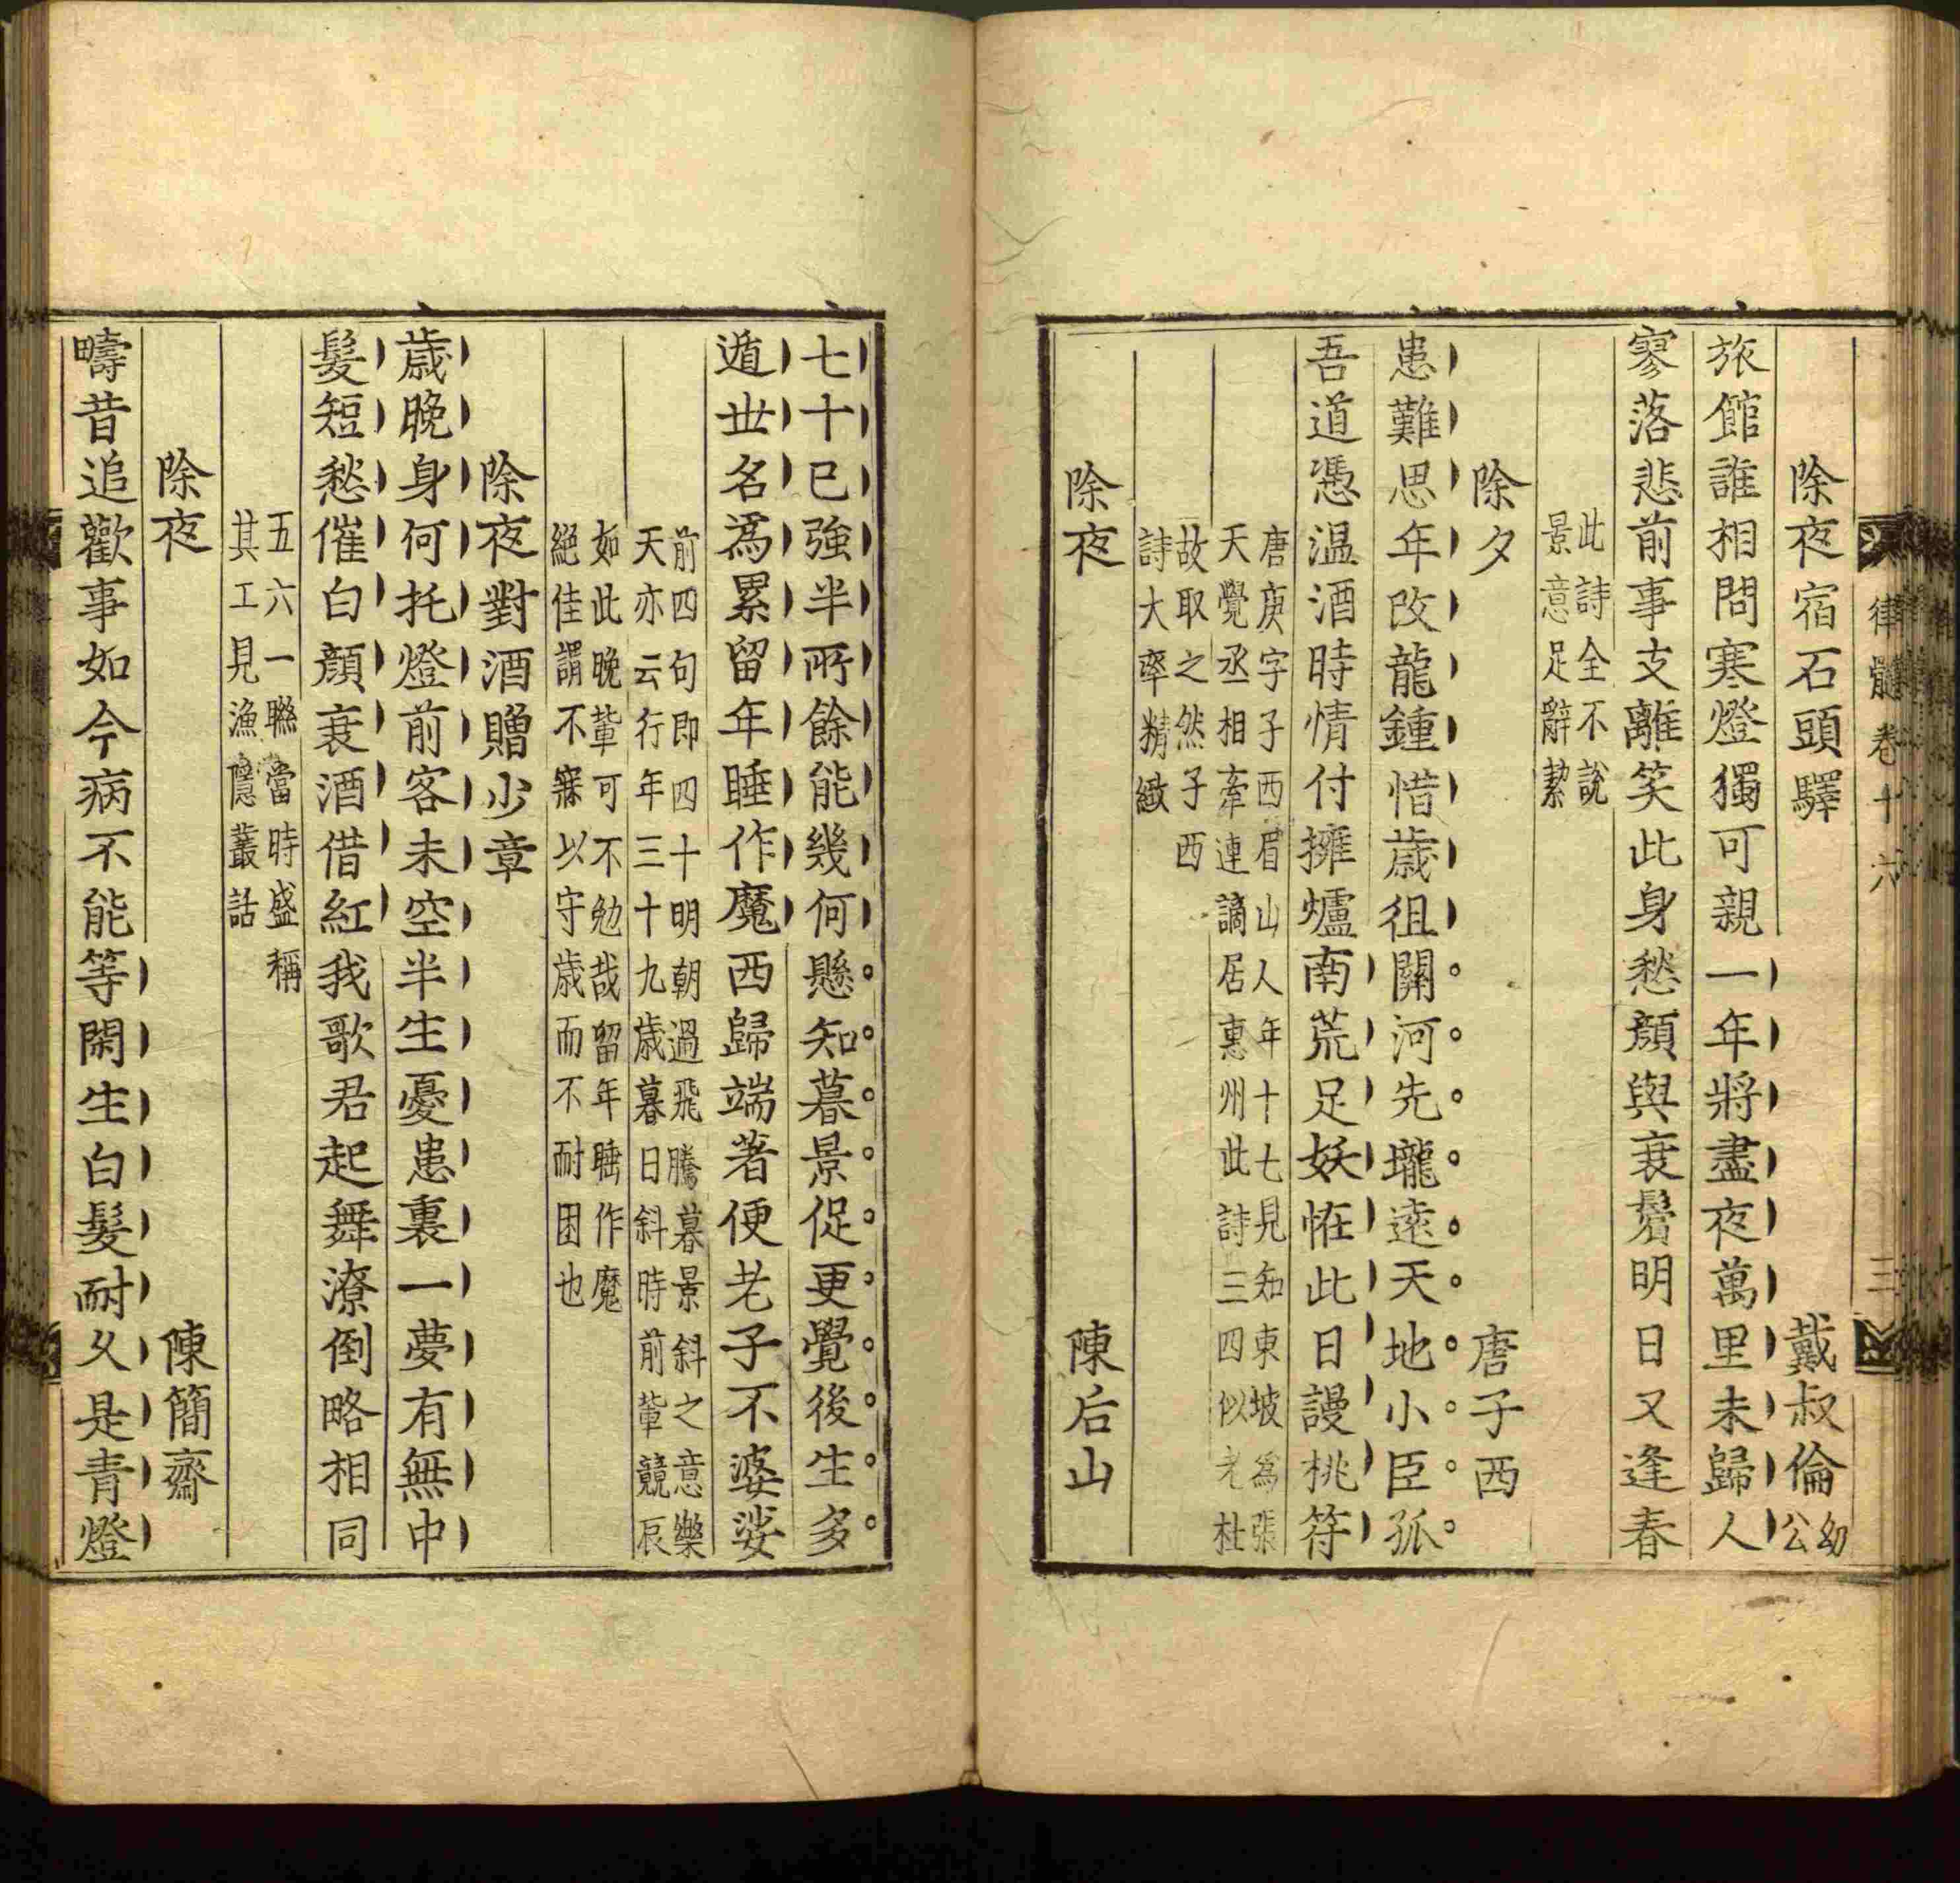 律髓卷十六 三
除夜宿石頭驛 戴叔倫幼公
旅館誰相問寒燈獨可親一年將盡夜萬里未歸人
寥落悲前事支離笑此身愁顏與衰鬢明日又逢春
此詩全不說
景意足辭潔
除夕 唐子西
患難思年改龍鍾惜歲徂關河先壠遠天地小臣孤
吾道憑温酒時情付擁爐南荒足妖恠此日謾桃符
唐庚字子西眉山人年十七見知東坡為張
天覺丞相牽連謫居惠州此詩三四似老杜
故取之然子西
詩大率精緻
除夜 陳后山
七十已強半所餘能幾何懸知暮景促更覺後生多
遁世名為累留年睡作魔西歸端著便老子不婆娑
前四句即四十明朝過飛騰暮景斜之意樂
天亦云行年三十九歲暮日斜時前輩競辰
如此晚輩可不勉哉留年睡作魔
絕佳謂不寐以守歲而不耐困也
除夜對酒贈少章
歲晚身何托燈前客未空半生憂患裏一夢有無中
髮短愁催白顏衰酒借紅我歌君起舞潦倒略相同
五六一聯當時盛稱
其工見漁隱叢話
除夜 陳簡齋
疇昔追歡事如今病不能等閑生白髮耐久是青燈